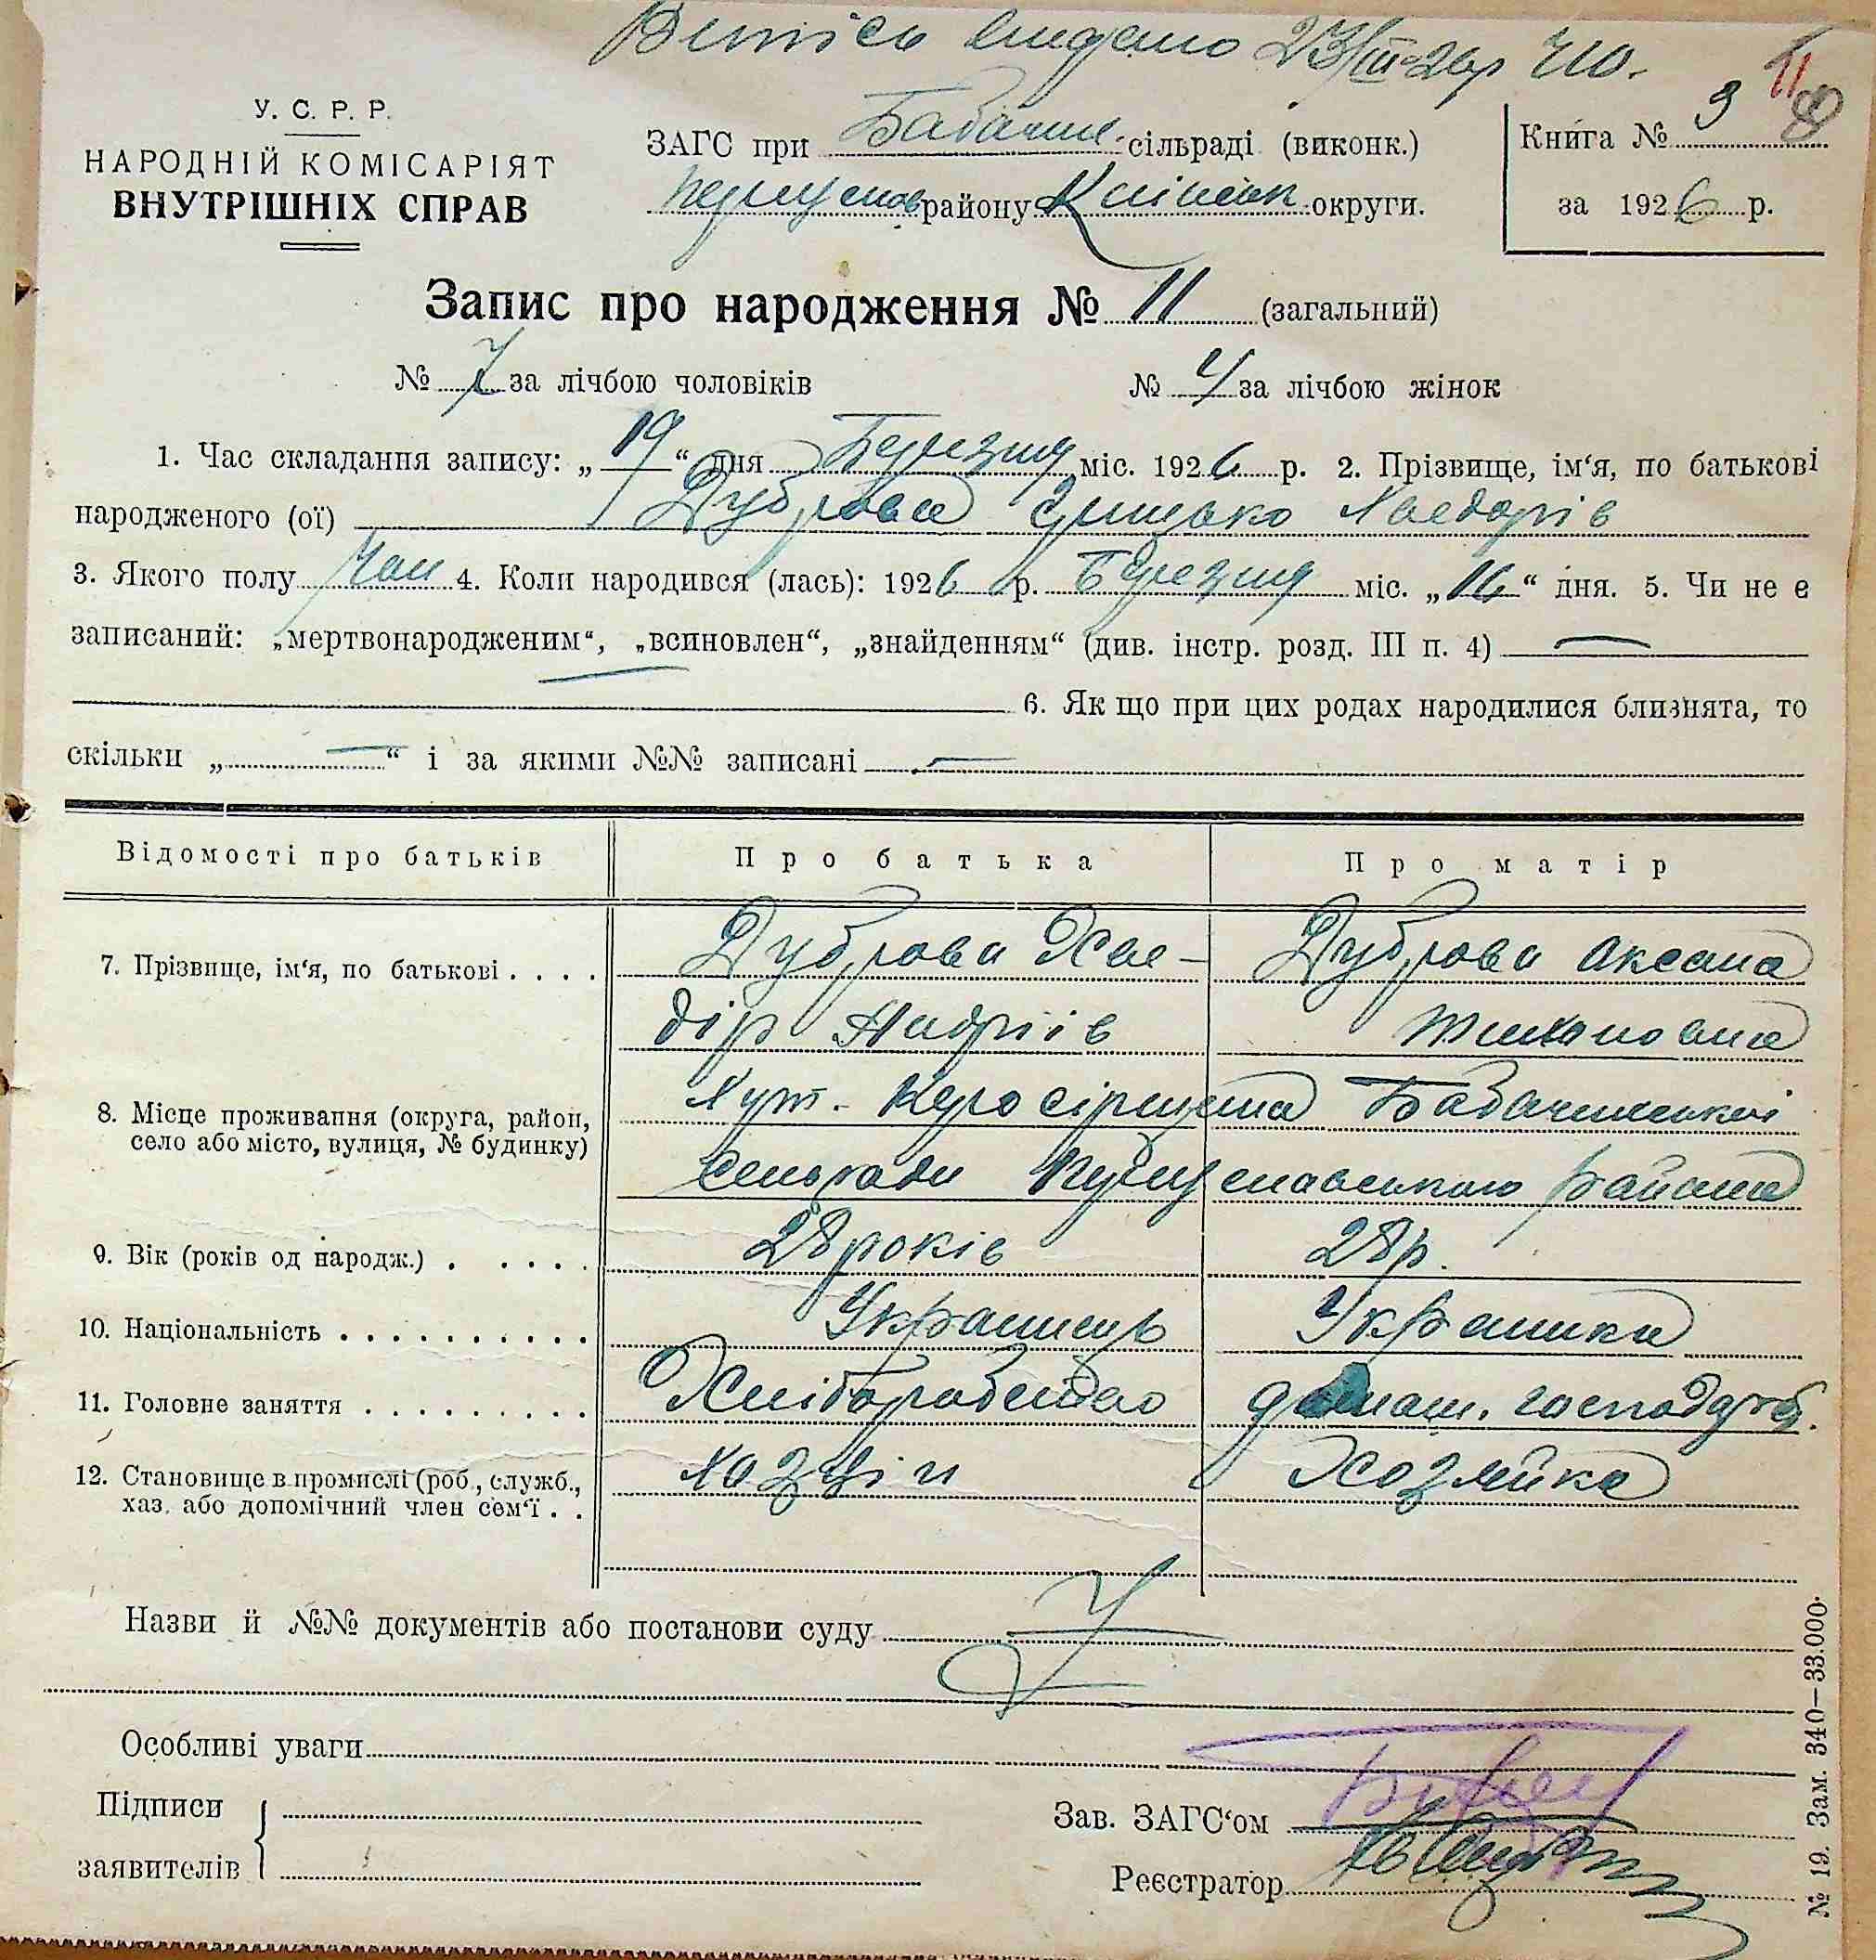 Випісь видано
У. С. Р. Р.
НАРОДНІЙ КОМІСАРІЯТ
ВНУТРІШНІХ СПРАВ
ЗАГС при Бабачин. сільраді (виконк.)
району округи.
Книга № 3
за 1926 р.
11
8
Запис про народження № 11 (загальний)
№ 7 за лічбою чоловіків № 4 за лічбою жінок
1. Час складання запису: „19“ дня Березня міс. 1926 р. 2. Прізвище, ім‘я, по батькові
народженого (ої) Дуброва Грицько Хведорів
3. Якого полу Чол 4. Коли народився (лась): 1926 р. Березня міс. „16“ дня. 5. Чи не є
записаний: „мертвонародженим“, „всиновлен“, „знайденням“ (див. інстр. розд. III п. 4) —
6. Як що при цих родах народилися близнята, то
скільки „—“ і за якими №№ записані —
Відомості про батьків Про батька Про матір
7. Прізвище, ім‘я, по батькові . . . . Дуброва Хве- Дуброва Оксана
дір Андріїв
8. Місце проживання (округа, район, Хут. Бабачинської
село або місто, вулиця, № будинку) сельради района
9. Вік (років од народж.) . . . . . 28 років 28 р.
10. Національність . . . . . . . . . . Українець Українка
11. Головне заняття . . . . . . . . . домаш. господарств.
12. Становище в промислі (роб., служб., хазяїн Хозяйка
хаз. або допомічний член сем‘ї . .
Назви й №№ документів або постанови суду
Особливі уваги
Підписи
заявителів
Зав. ЗАГС‘ом
Реєстратор
№ 19. Зам. 340—33.000.